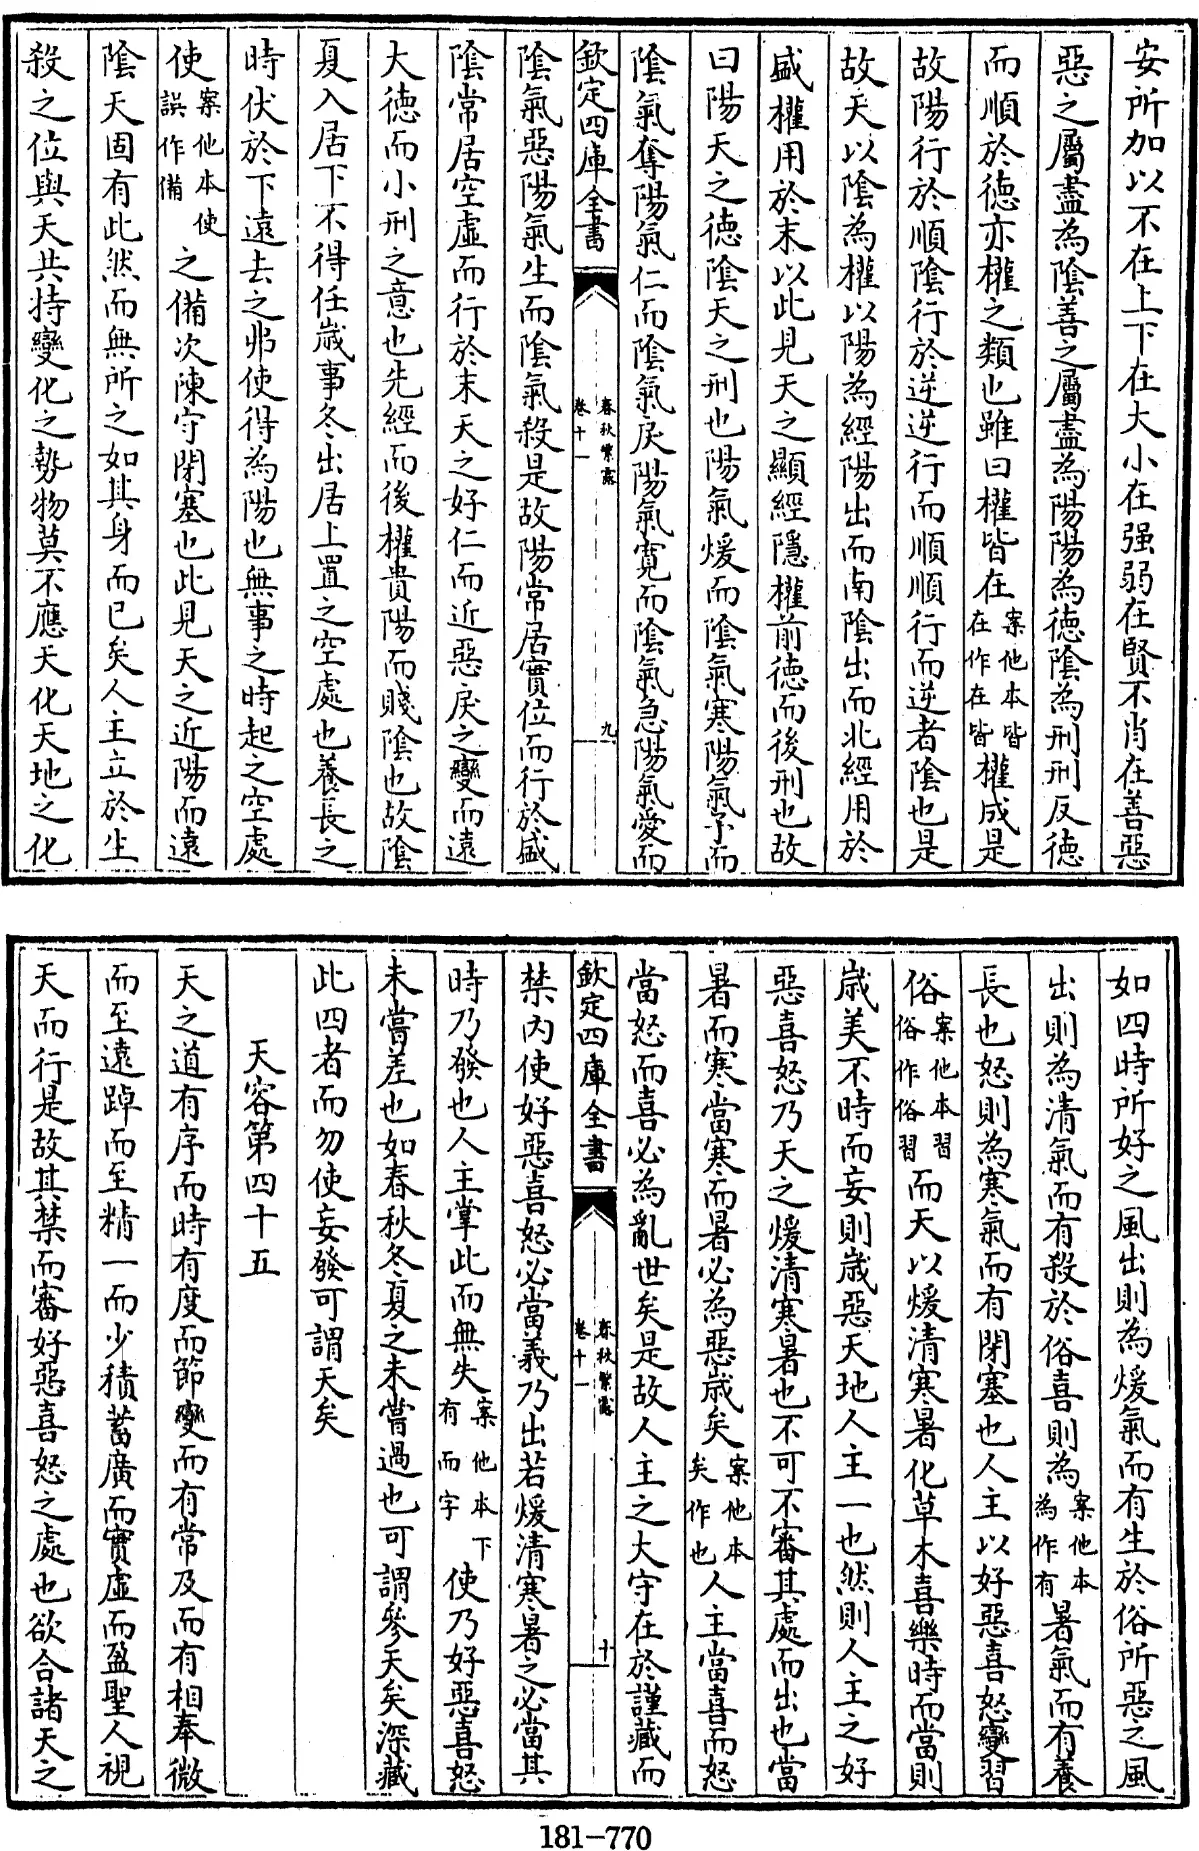 安所加以不在上下在大小在强弱在賢不肖在善惡
惡之屬盡為陰善之屬盡為陽陽為德陰為刑刑反德
而順於德亦權之類也雖曰權皆在案他本皆在作在皆權成是
故陽行於順陰行於逆逆行而順順行而逆者陰也是
故天以陰為權以陽為經陽出而南陰出而北經用於
盛權用於末以此見天之顯經隱權前德而後刑也故
曰陽天之德陰天之刑也陽氣煖而陰氣寒陽氣予而
陰氣奪陽氣仁而陰氣戾陽氣寛而陰氣急陽氣愛而
欽定四庫全書 春秋繁露卷十一 九
陰氣惡陽氣生而陰氣殺是故陽常居實位而行於盛
陰常居空虛而行於末天之好仁而近惡戾之變而遠
大德而小刑之意也先經而後權貴陽而賤陰也故陰
夏入居下不得任歲事冬出居上置之空處也養長之
時伏於下遠去之弗使得為陽也無事之時起之空處
使案他本使誤作備之備次陳守閉塞也此見天之近陽而遠
陰天固有此然而無所之如其身而已矣人主立於生
殺之位與天共持變化之勢物莫不應天化天地之化
如四時所好之風出則為煖氣而有生於俗所惡之風
出則為清氣而有殺於俗喜則為案他本為作有暑氣而有養
長也怒則為寒氣而有閉塞也人主以好惡喜怒變習
俗案他本習俗作俗習而天以煖清寒暑化草木喜樂時而當則
歲美不時而妄則歲惡天地人主一也然則人主之好
惡喜怒乃天之煖清寒暑也不可不審其處而出也當
暑而寒當寒而暑必為惡歲矣案他本矣作也人主當喜而怒
當怒而喜必為亂世矣是故人主之大守在於謹藏而
欽定四庫全書 春秋繁露卷十一 十
禁內使好惡喜怒必當義乃出若煖清寒暑之必當其
時乃發也人主掌此而無失案他本下有而字使乃好惡喜怒
未嘗差也如春秋冬夏之未嘗過也可謂參天矣深藏
此四者而勿使妄發可謂天矣
天容第四十五
天之道有序而時有度而節變而有常及而有相奉微
而至遠踔而至精一而少積蓄廣而實虛而盈聖人視
天而行是故其禁而審好惡喜怒之處也欲合諸天之
181-770